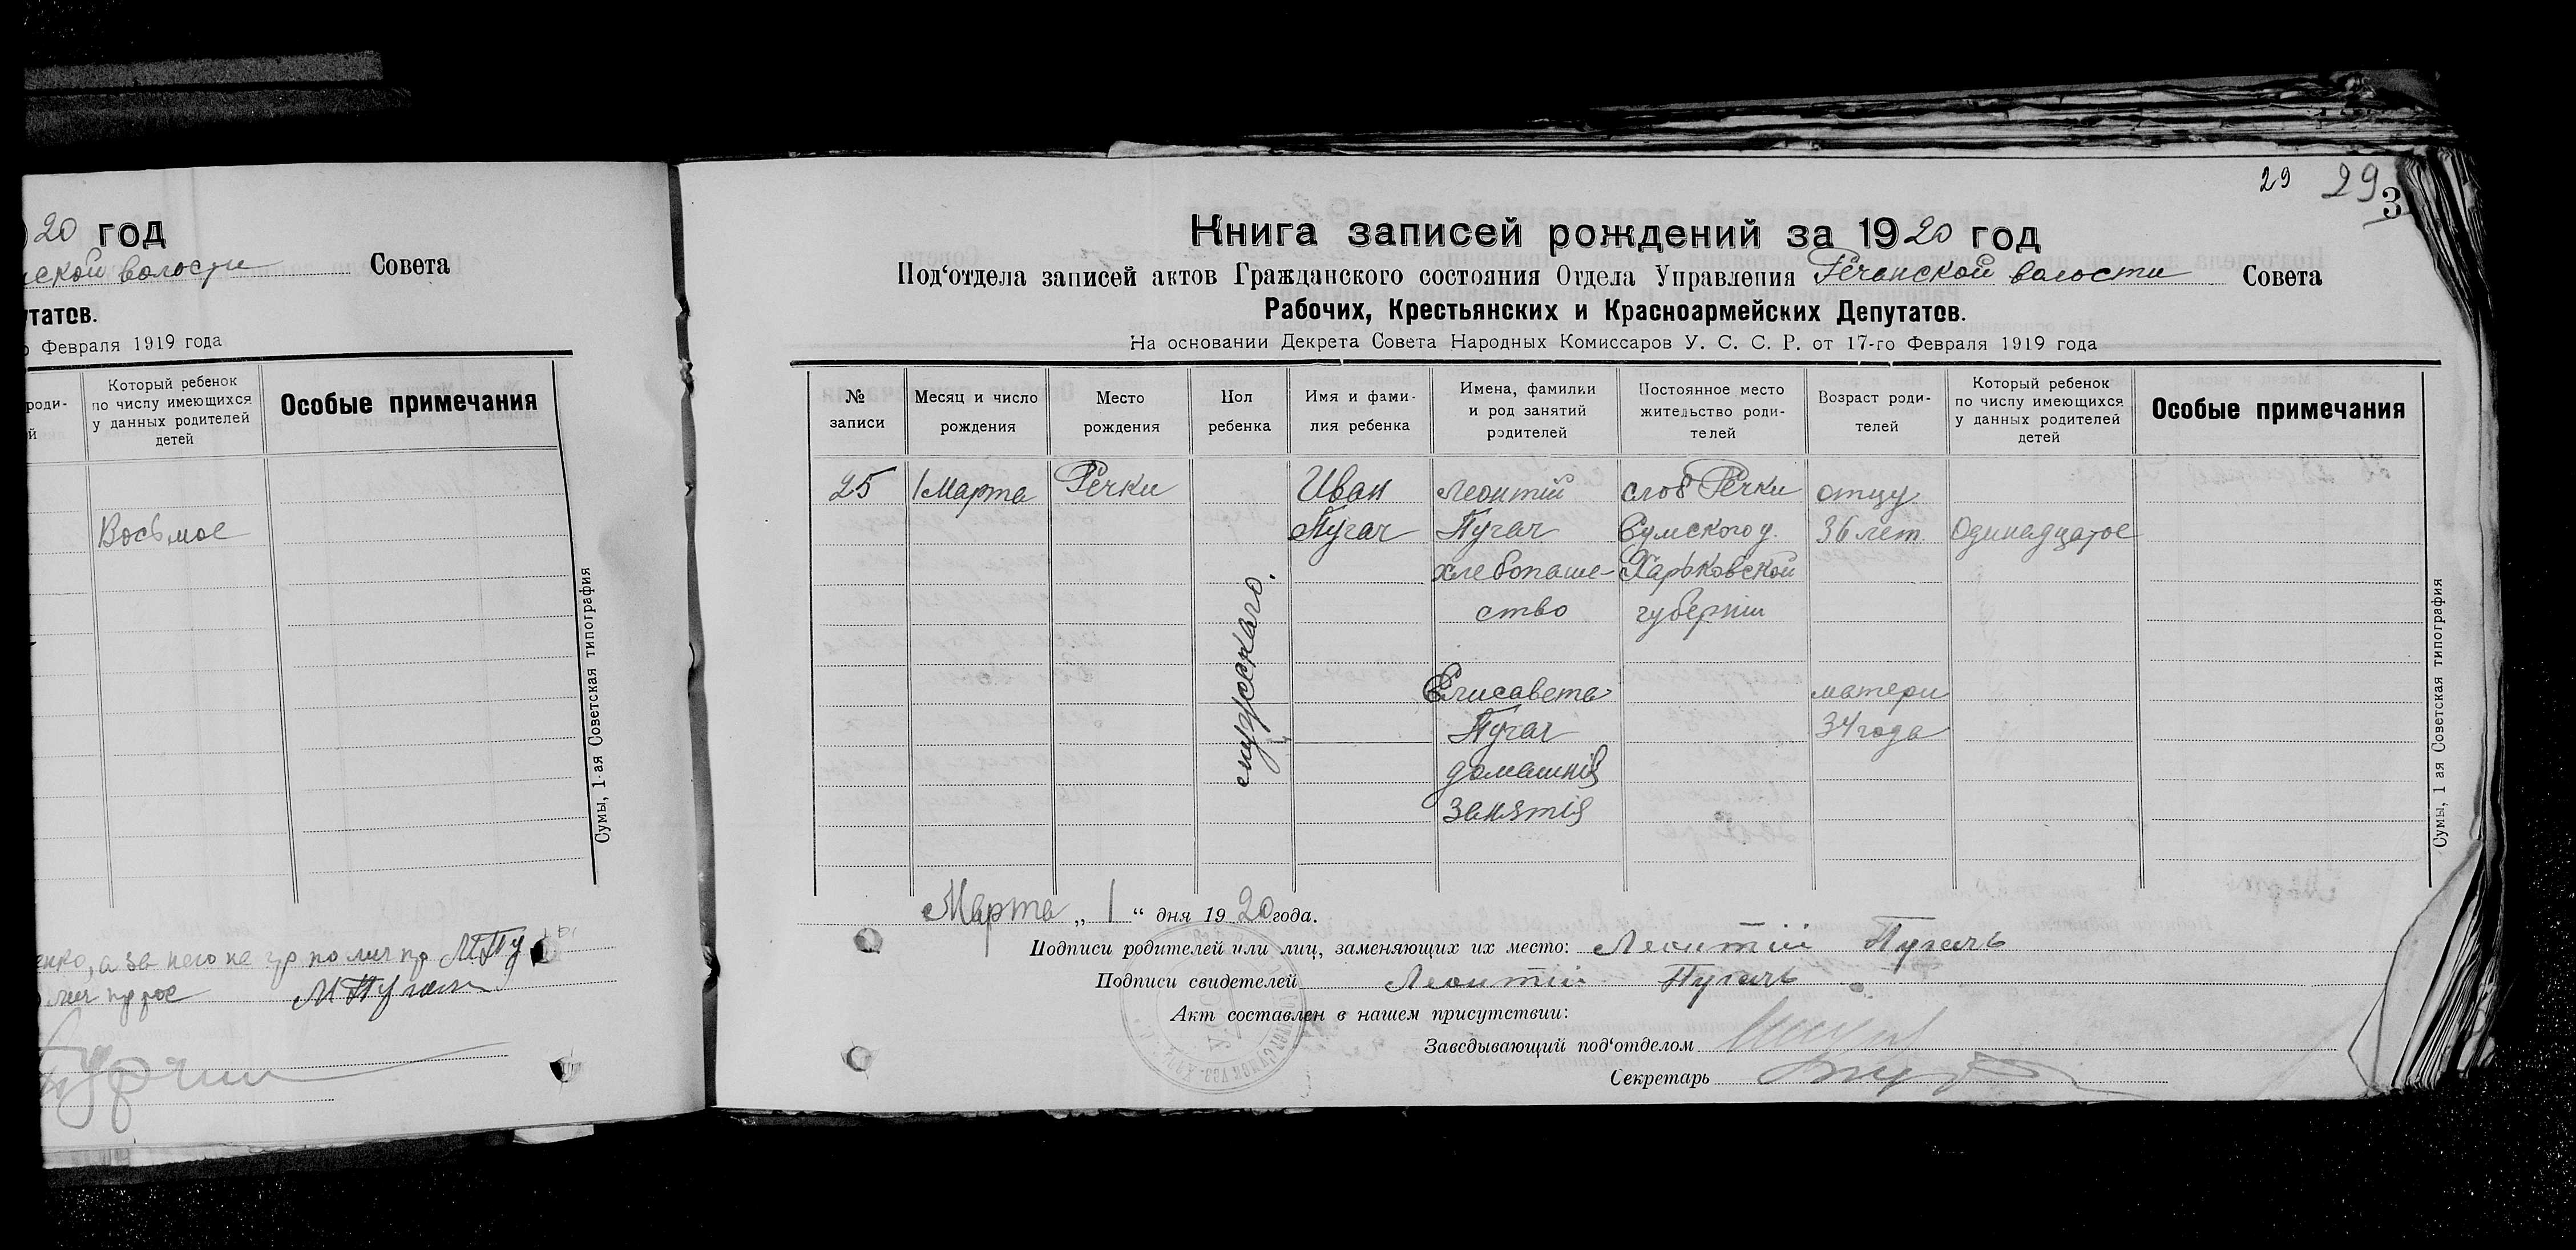 20 год
ской волости Совета
утатов.
Февраля 1919 года
роди-
й
Который ребенок
по числу имеющихся
у данных родителей
детей
Особые примечания
Восьмое
Сумы, 1-ая Советская типография
енко, а за него не гр по лич пр М Пу
лич прос М Пугач
29 29
3
Книга записей рождений за 1920 год
Под‘отдела записей актов Гражданского состояния Отдела Управления Речанской волости Совета
Рабочих, Крестьянских и Красноармейских Депутатов.
На основании Декрета Совета Народных Комиссаров У. С. С. Р. от 17-го Февраля 1919 года
№
записи
Месяц и число
рождения
Место
рождения
Пол
ребенка
Имя и фами-
лия ребенка
Имена, фамилии
и род занятий
родителей
Постоянное место
жительство роди-
телей
Возраст роди-
телей
Который ребенок
по числу имеющихся
у данных родителей
детей
Особые примечания
25
1 Марта
Речки
мужескаго.
Иван
Пугач
Леонтій
Пугач
хлебопаше-
ство
Елисавета
Пугач
домашнія
занятія
слоб Речки
Сумского у.
Харьковской
губерніи
отцу
36 лет.
матери
34 года
Одинадцатое
Сумы, 1 ая Советская типография
Марта „ 1 “ дня 1920 года.
Подписи родителей или лиц, заменяющих их место: Леонтій Пугачъ
Подписи свидетелей Леонтій Пугачъ
Акт составлен в нашем присутствии:
Заведывающий под‘отделом
Секретарь